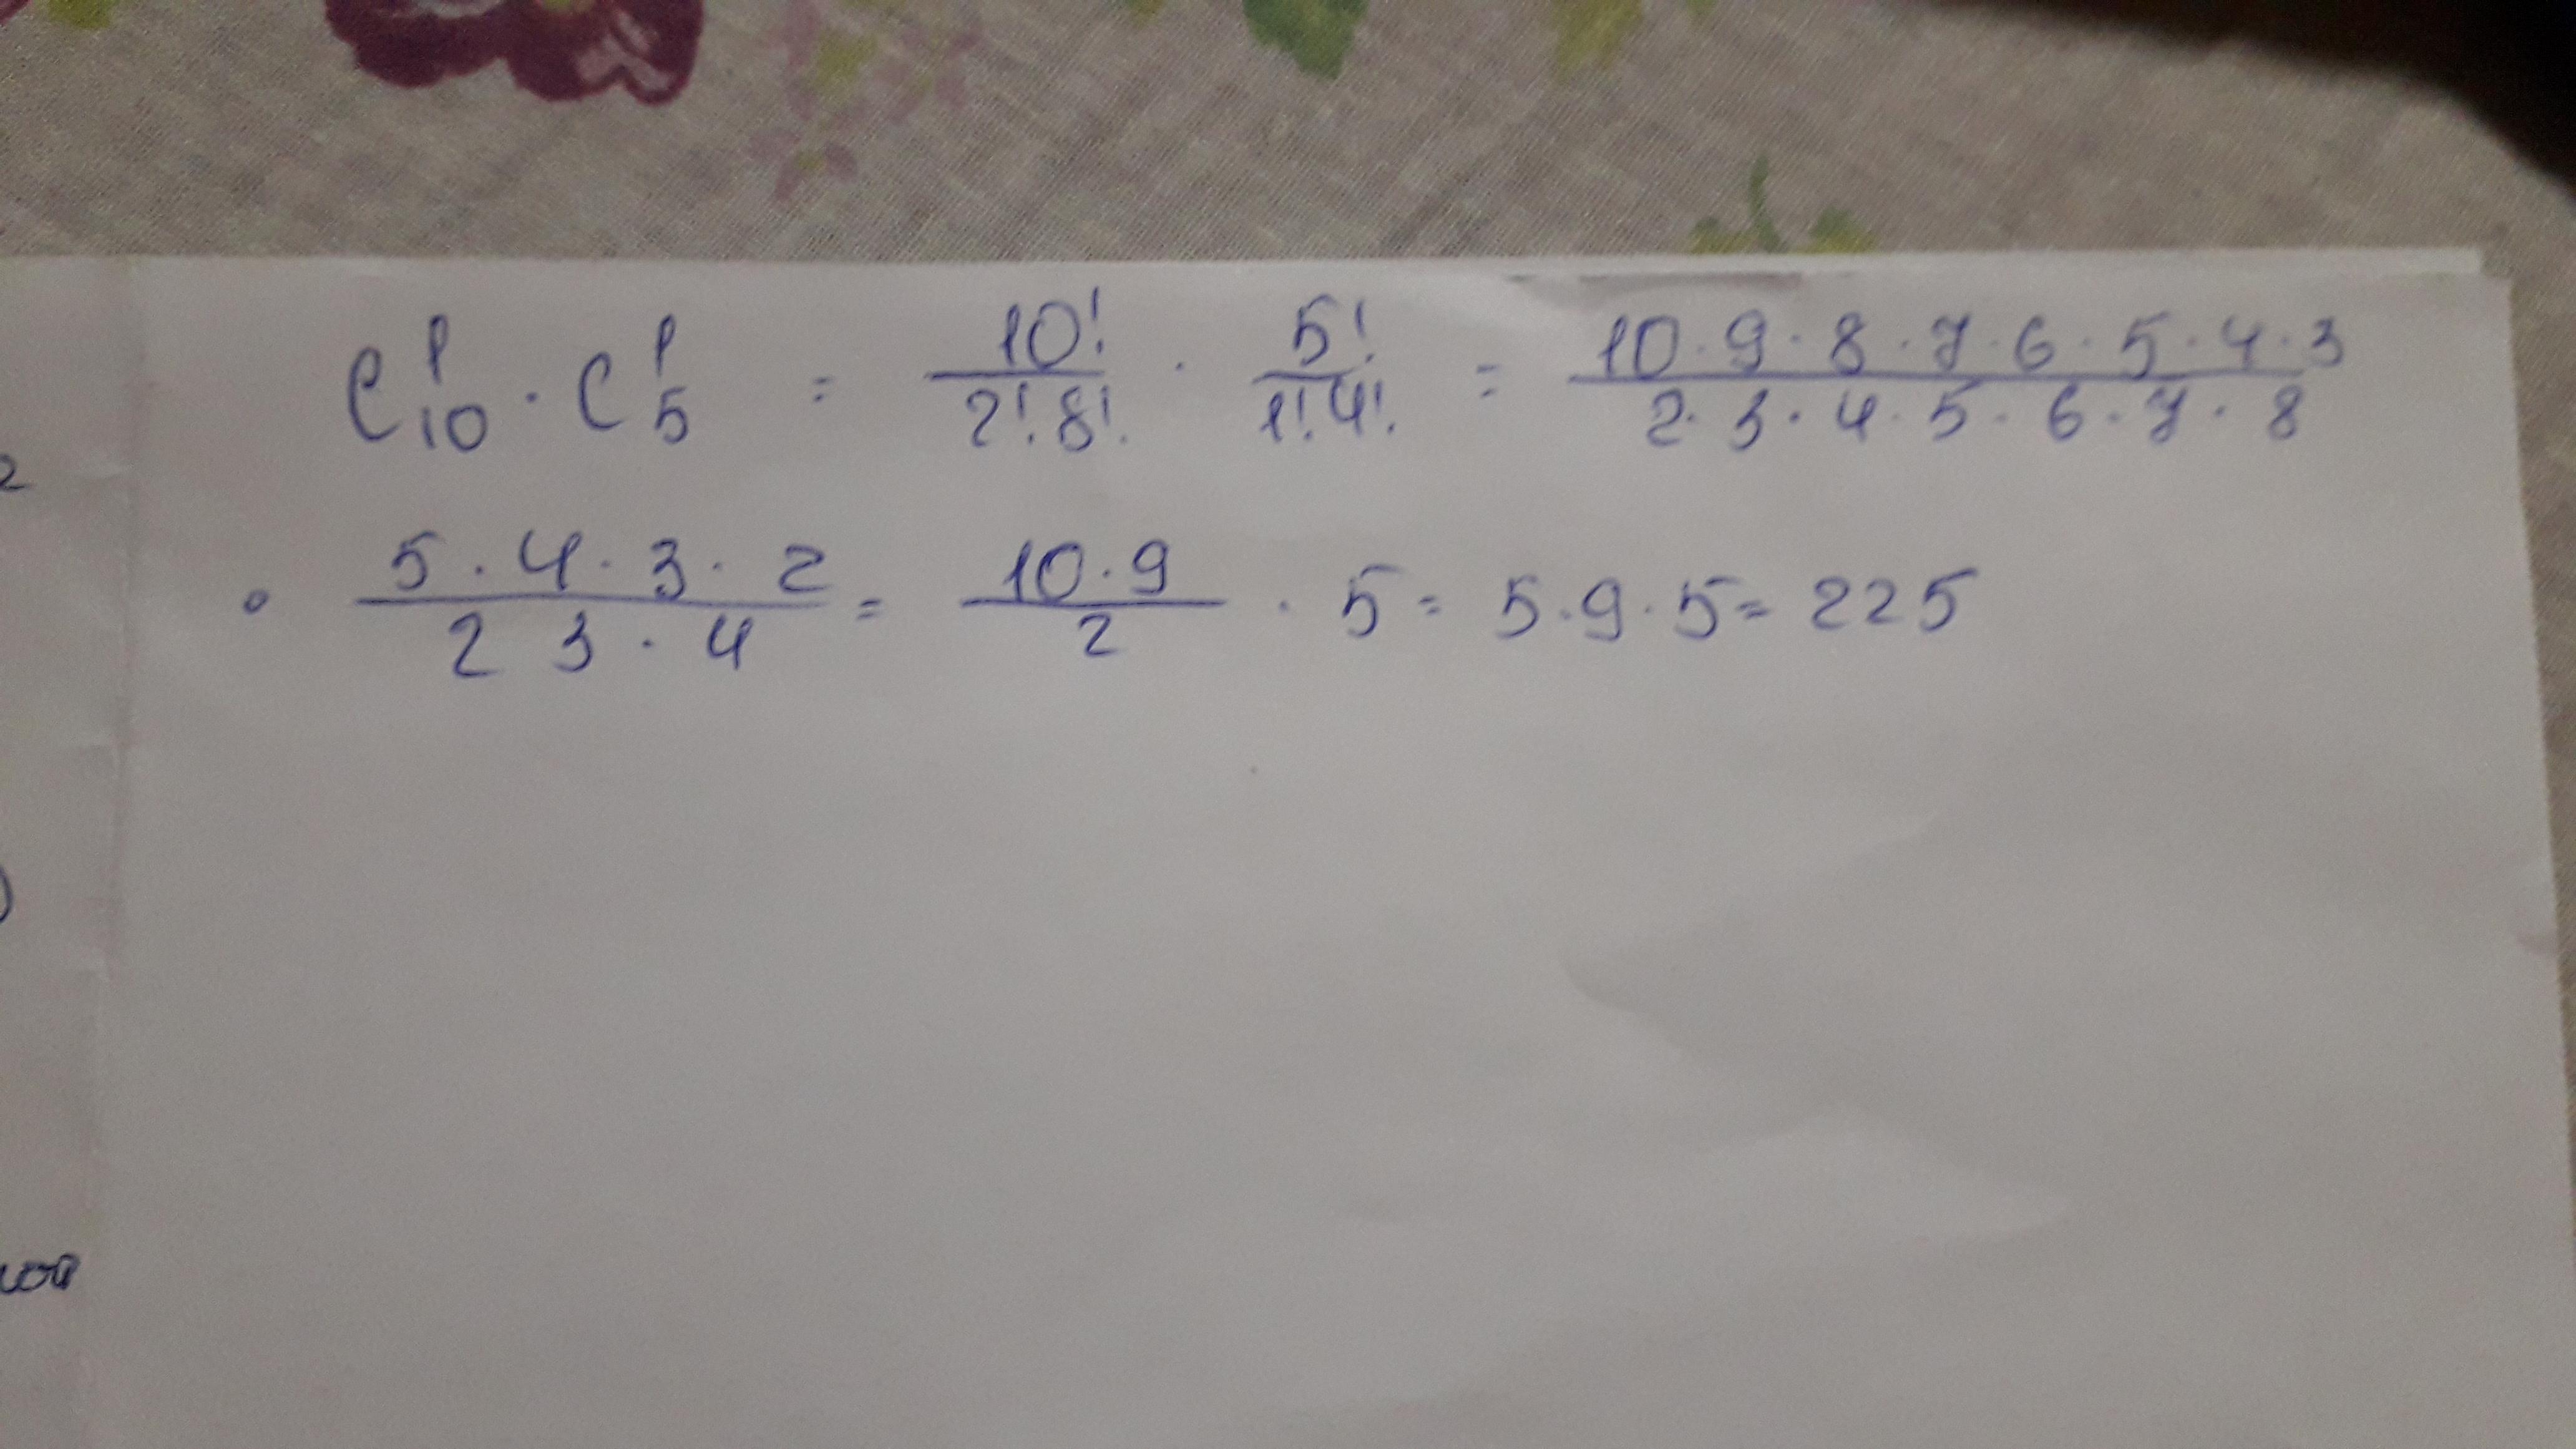 C¹₁₀ · C¹₅ = 10!/2!8! · 5!/1!4! = 10·9·8·7·6·5·4·3/2·3·4·5·6·7·8
· 5·4·3·2/2 3·4 = 10·9/2 · 5 = 5·9·5 = 225
2
)